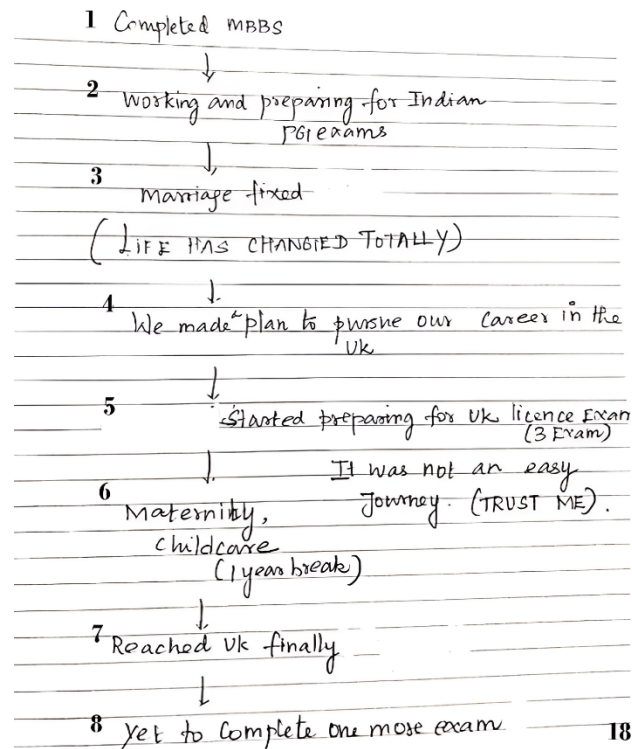 1 Completed MBBS
2 Working and preparing for Indian
PG exams
3 Marriage fixed
(LIFE HAS CHANGED TOTALLY)
4 We made a plan to pursue our career in the
UK
5 Started preparing for UK licence Exam
(3 Exam)
It was not an easy
6 Journey. (TRUST ME).
Maternity,
childcare
(1 year break)
7 Reached UK finally
8 Yet to Complete one more exam
18